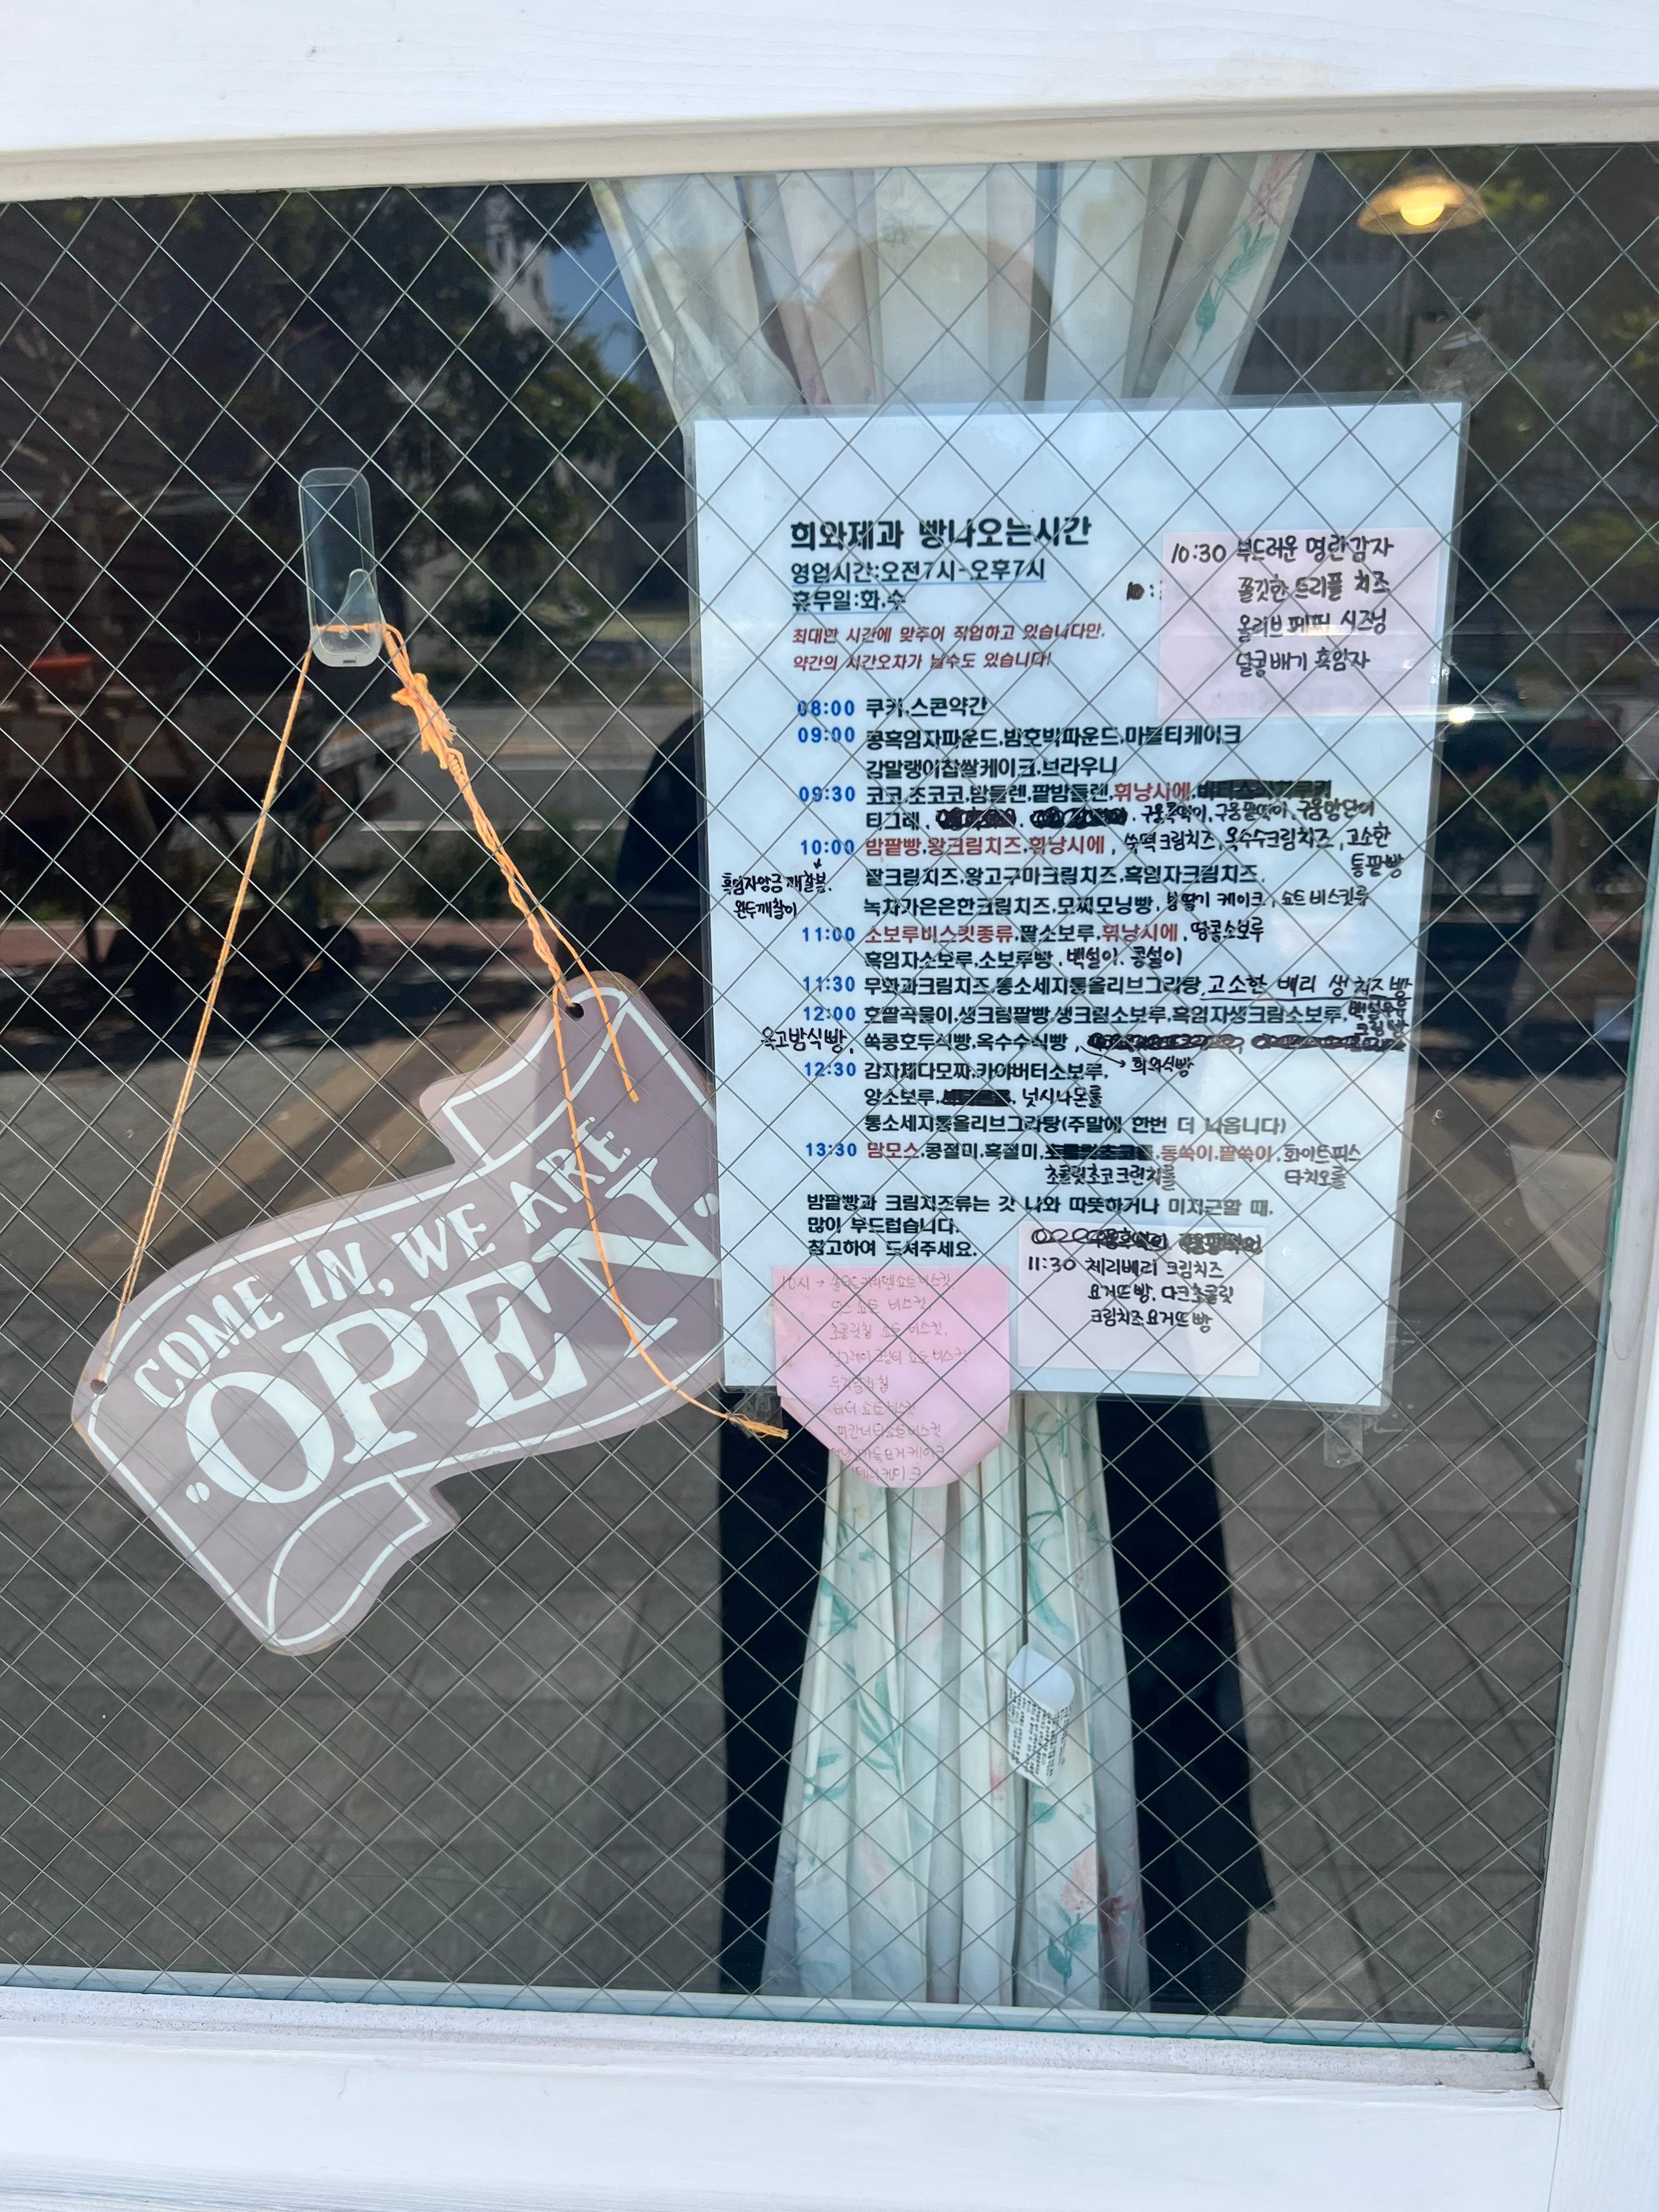 COME IN, WE ARE
"OPEN"
희와제과 빵나오는시간
영업시간:오전7시-오후7시
휴무일:화,수
최대한 시간에 맞추어 작업하고 있습니다만,
약간의 시간오차가 날수도 있습니다!
10:30 부드러운 명란감자
쫄깃한 트리플 치즈
올리브 페퍼 시즈닝
달콩배기 흑임자
08:00 쿠키,스콘약간
09:00 콩흑임자파운드,밤호박파운드,마블티케이크
감말랭이찹쌀케이크,브라우니
09:30 코코,조코코,밤들렌,팥밤들렌,휘낭시에,
티그레, 구움콩떡이,구움팥떡이,구움밤단이
10:00 밤팥빵,왕크림치즈,휘낭시에, 쑥떡크림치즈,옥수수크림치즈,고소한
통팥빵
흑임자앙금깨찰봉.
완두깨찰이
팥크림치즈,왕고구마크림치즈,흑임자크림치즈,
녹차가은은한크림치즈,모찌모닝빵, 케이크, 쇼트비스킷류
11:00 소보루비스킷종류,팥소보루,휘낭시에,땅콩소보루
흑임자소보루,소보루빵,백설이,콩설이
11:30 무화과크림치즈,통소세지통올리브그라탕,고소한 베리 생치즈빵
12:00 호팥곡물이,생크림팥빵,생크림소보루,흑임자생크림소보루,
크림빵
옥고밤식빵, 쑥콩호두식빵,옥수수식빵,
→ 희와식빵
12:30 감자채다모짜,카야버터소보루,
앙소보루, 넛시나몬롤
통소세지통올리브그라탕(주말에 한번 더 나옵니다)
13:30 맘모스,콩절미,흑절미, 동쑥이,팥쑥이,화이트피스
타치오롤
초콜릿초코크런치롤
밤팥빵과 크림치즈류는 갓 나와 따뜻하거나 미지근할 때,
많이 부드럽습니다.
참고하여 드셔주세요.
11:30 체리베리 크림치즈
요거뜨빵, 다크초콜릿
크림치즈요거뜨빵
10시 →
쇼트 비스킷,
쇼트 비스킷,
쇼트 비스킷